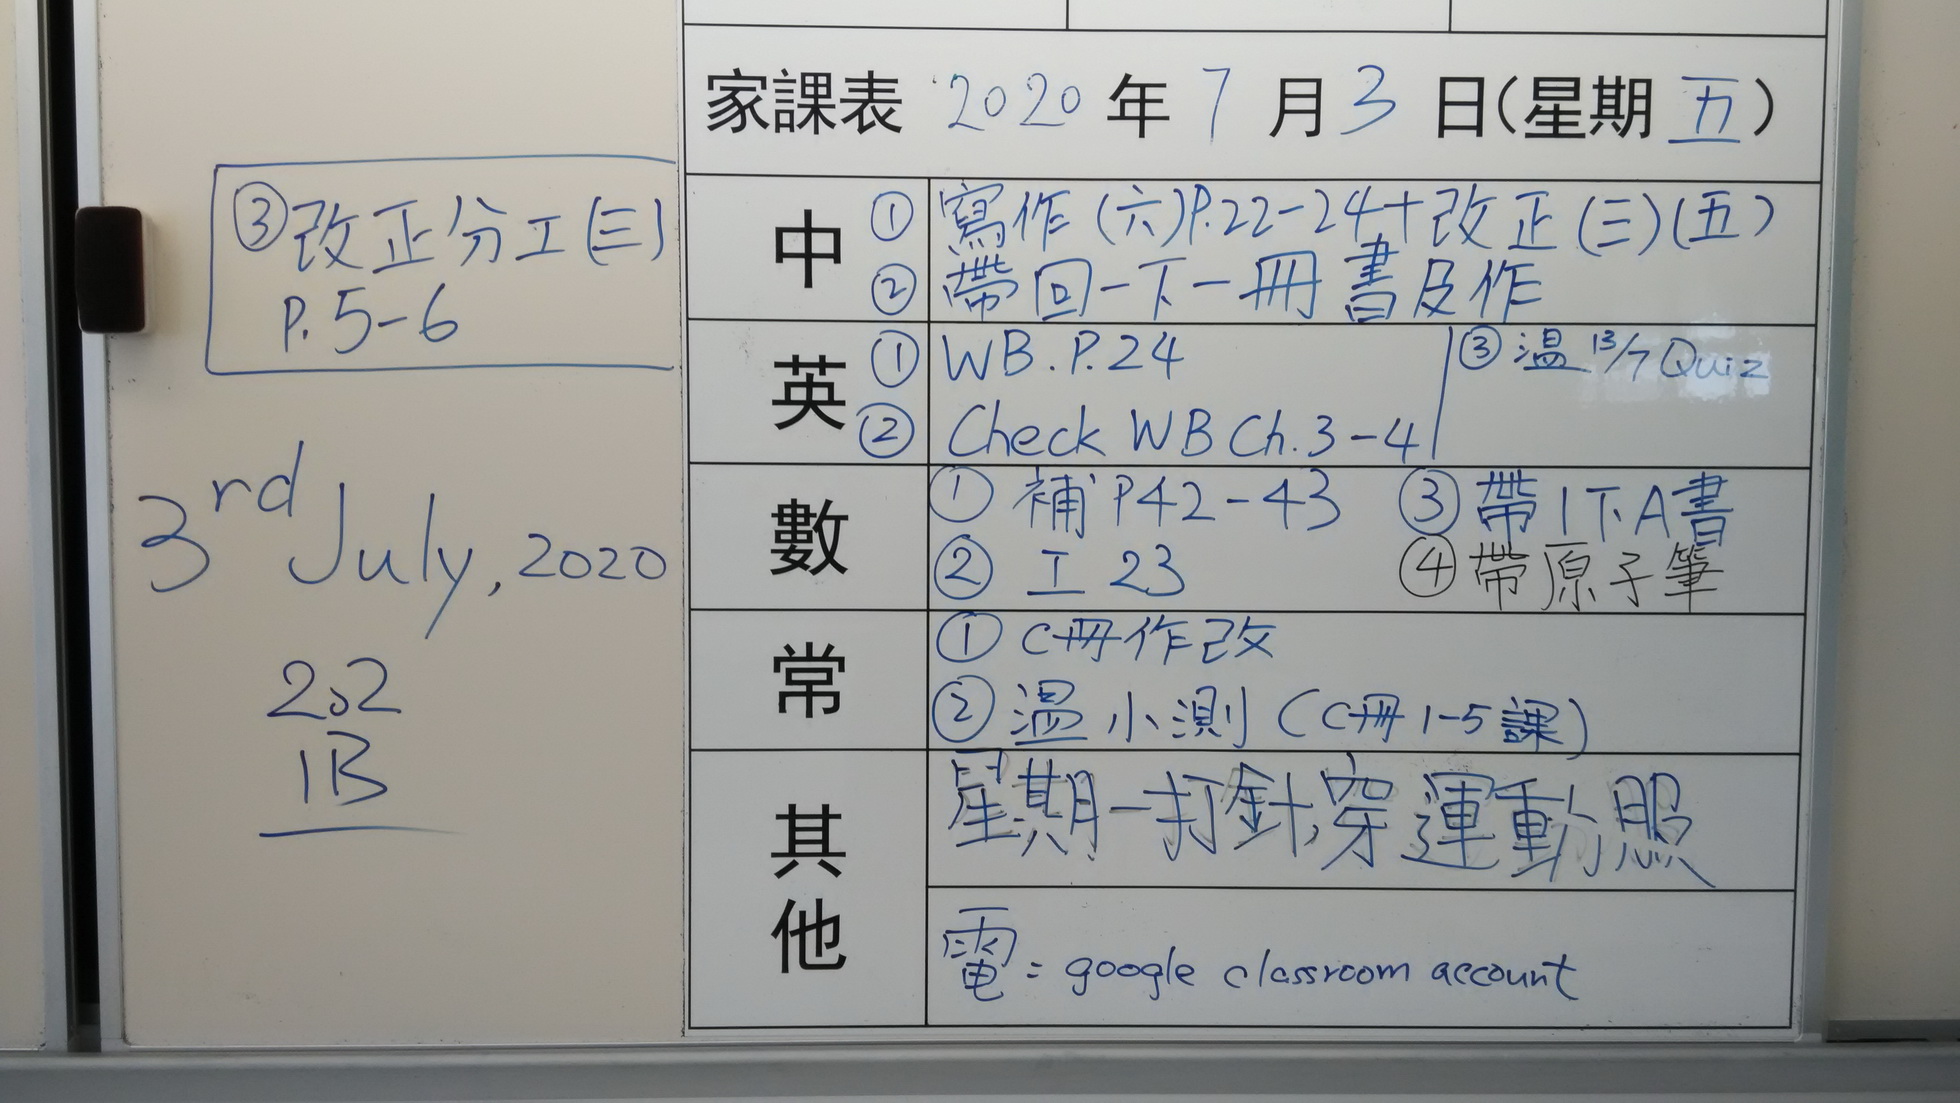 家課表 2020 年 7 月 3 日(星期 五)
③改正分工(三)
P.5-6
3rd July, 2020
202
1B
中
① 寫作(六)P.22-24+改正(三)(五)
② 帶回一下一冊書及作
英
① WB.P.24
② Check WB Ch.3-4
③溫 13/7 Quiz
數
① 補P42-43
② 工23
③ 帶1下A書
④ 帶原子筆
常
① C冊作改
② 溫小測(C冊1-5課)
其他
星期一打針,穿運動服
電 = google classroom account